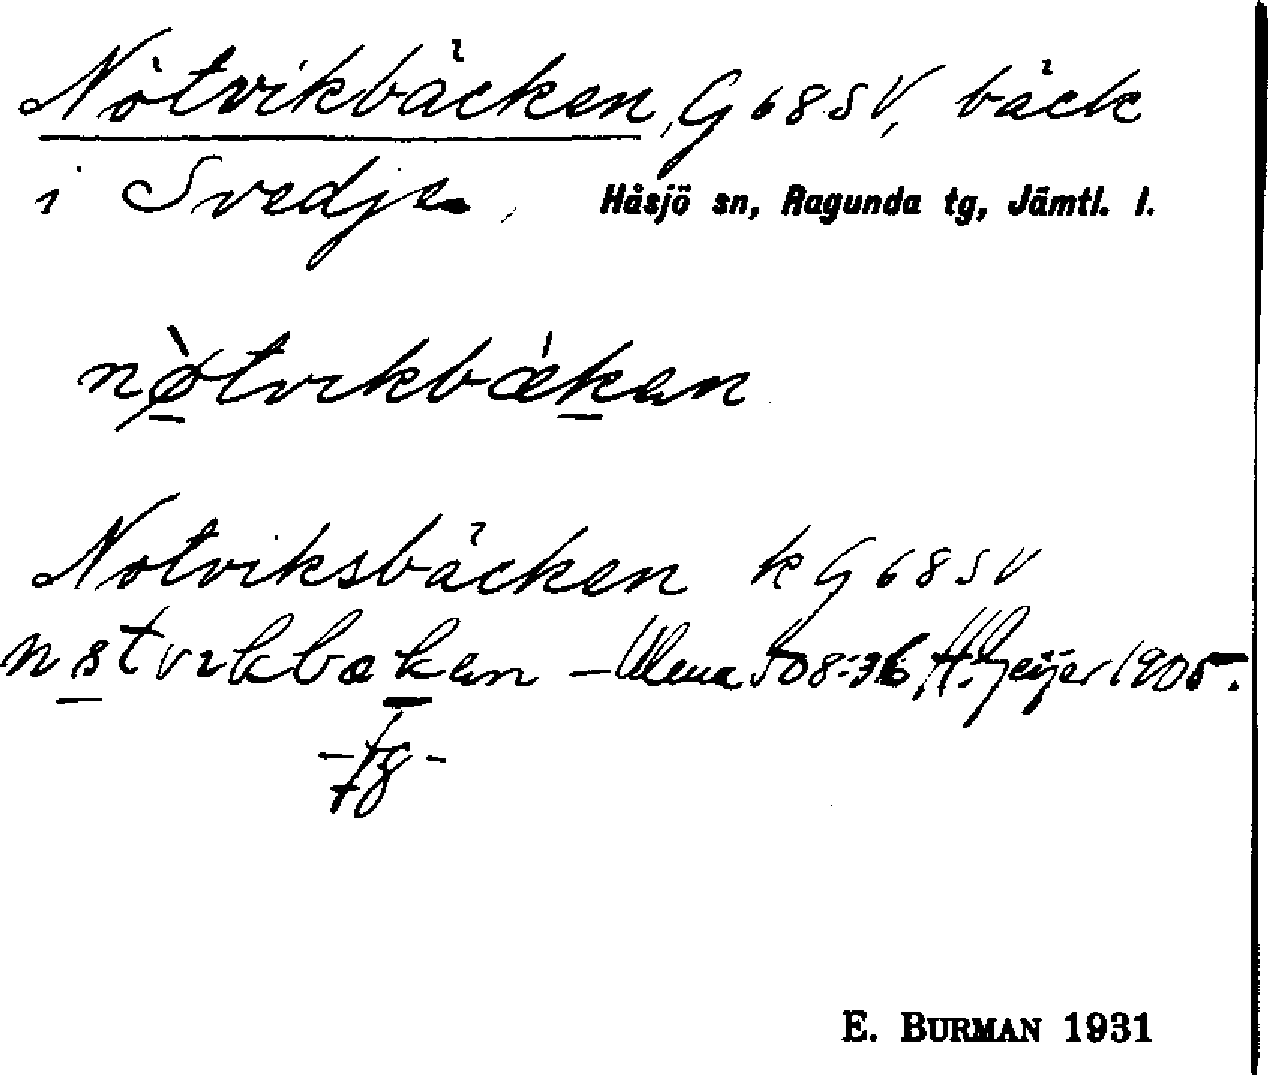 Nòtvikbäcken, G 68 SV, bäck
i Svedje, Håsjö sn, Ragunda tg, Jämtl. l.
nø̠̀tvɪkbǽk̠en
Notviksbäcken k G 68 SV
n tvɪkbæk̠en – A. Geijer 1905.
E. BURMAN 1931